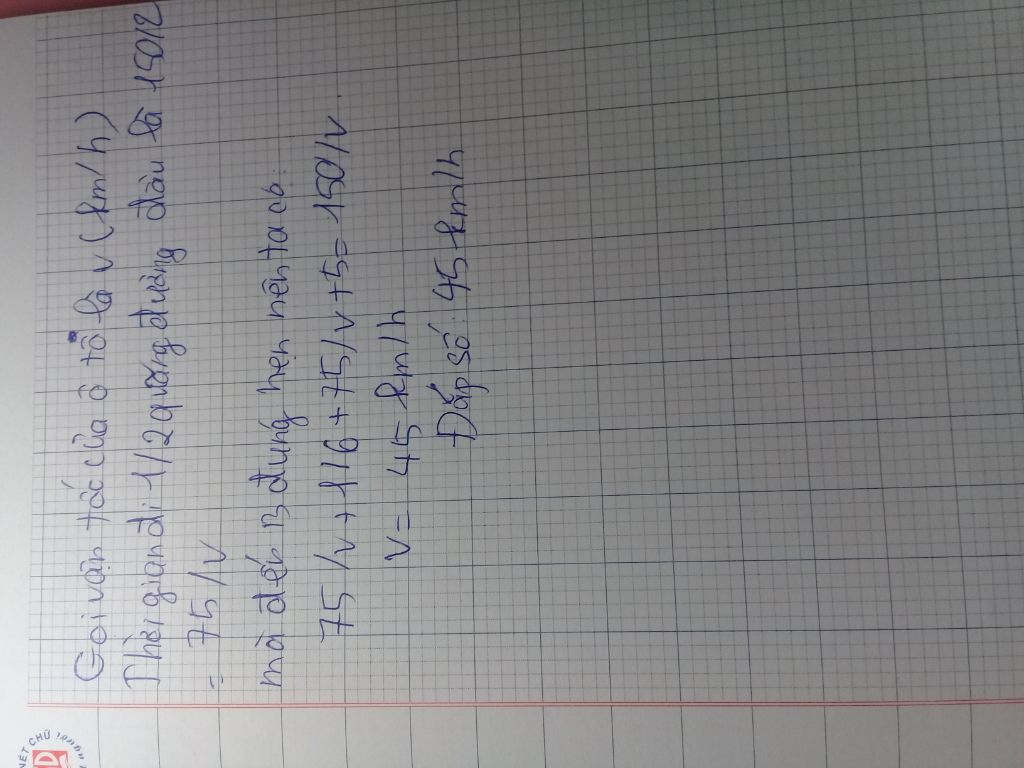 Gọi vận tốc của ô tô là v (km/h)
Thời gian đi 1/2 quãng đường đầu là 150/2
= 75/v
mà đến B đúng hẹn nên ta có:
75/v+1/6+75/v+5=150/v.
v= 45 km/h
Đáp số: 45 km/h
NÉT CHỮ